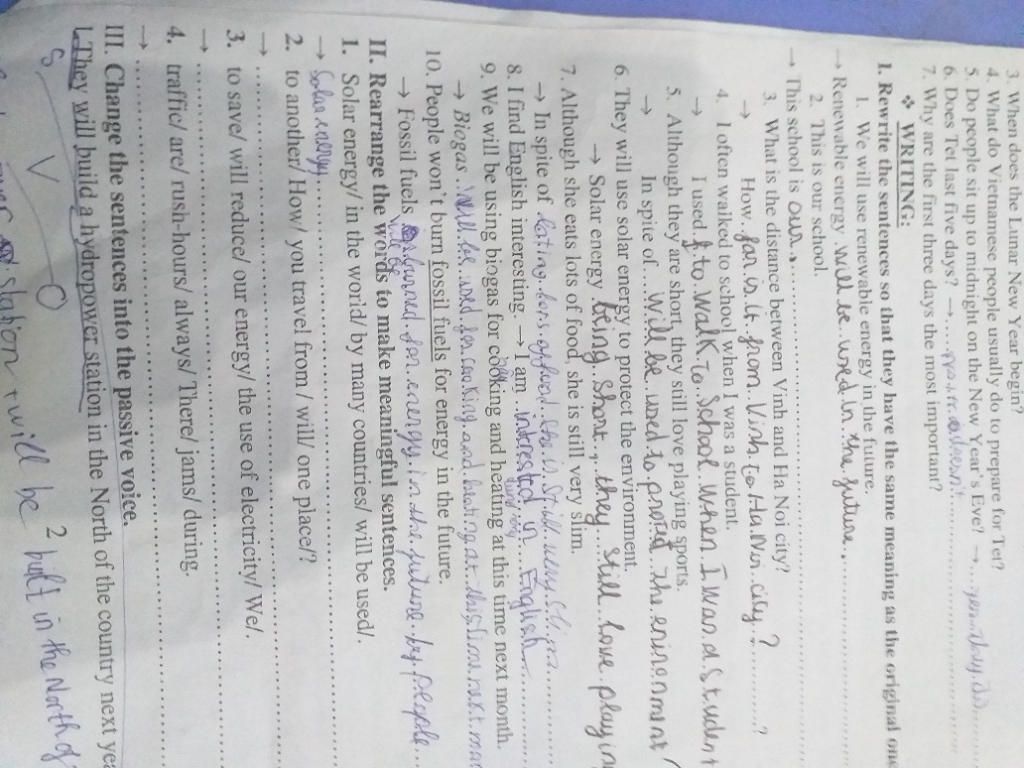 3. When does the Lunar New Year begin?
4. What do Vietnamese people usually do to prepare for Tet?
5. Do people sit up to midnight on the New Year's Eve? → ... yes, they do
6. Does Tet last five days? → .... no, it doesn't
7. Why are the first three days the most important?
❖ WRITING:
I. Rewrite the sentences so that they have the same meaning as the original one
1. We will use renewable energy in the future.
→ Renewable energy will be used in the future.
2. This is our school.
→ This school is ours.
3. What is the distance between Vinh and Ha Noi city?
→ How far is it from Vinh to Hanoi city? ?
4. I often walked to school when I was a student.
→ I used to walk to school when I was a student
5. Although they are short, they still love playing sports.
→ In spite of being short, they still love playing
6. They will use solar energy to protect the environment.
→ Solar energy will be used to protect the
7. Although she eats lots of food, she is still very slim.
→ In spite of eating still very slim
8. I find English interesting. → I am intrested in English
9. We will be using biogas for cooking and heating at this time next month.
→ Biogas will be used for cooking and heating at this time next
10. People won't burn fossil fuels for energy in the future.
→ Fossil fuels burned for energy in the future by people
II. Rearrange the words to make meaningful sentences.
1. Solar energy/ in the world/ by many countries/ will be used/.
→ Solar energy
2. to another/ How/ you travel from / will/ one place/?
→
3. to save/ will reduce/ our energy/ the use of electricity/ We/.
→
4. traffic/ are/ rush-hours/ always/ There/ jams/ during.
→
III. Change the sentences into the passive voice.
1. They will build a hydropower station in the North of the country next yea
S V O 2
station + will be built in the North of